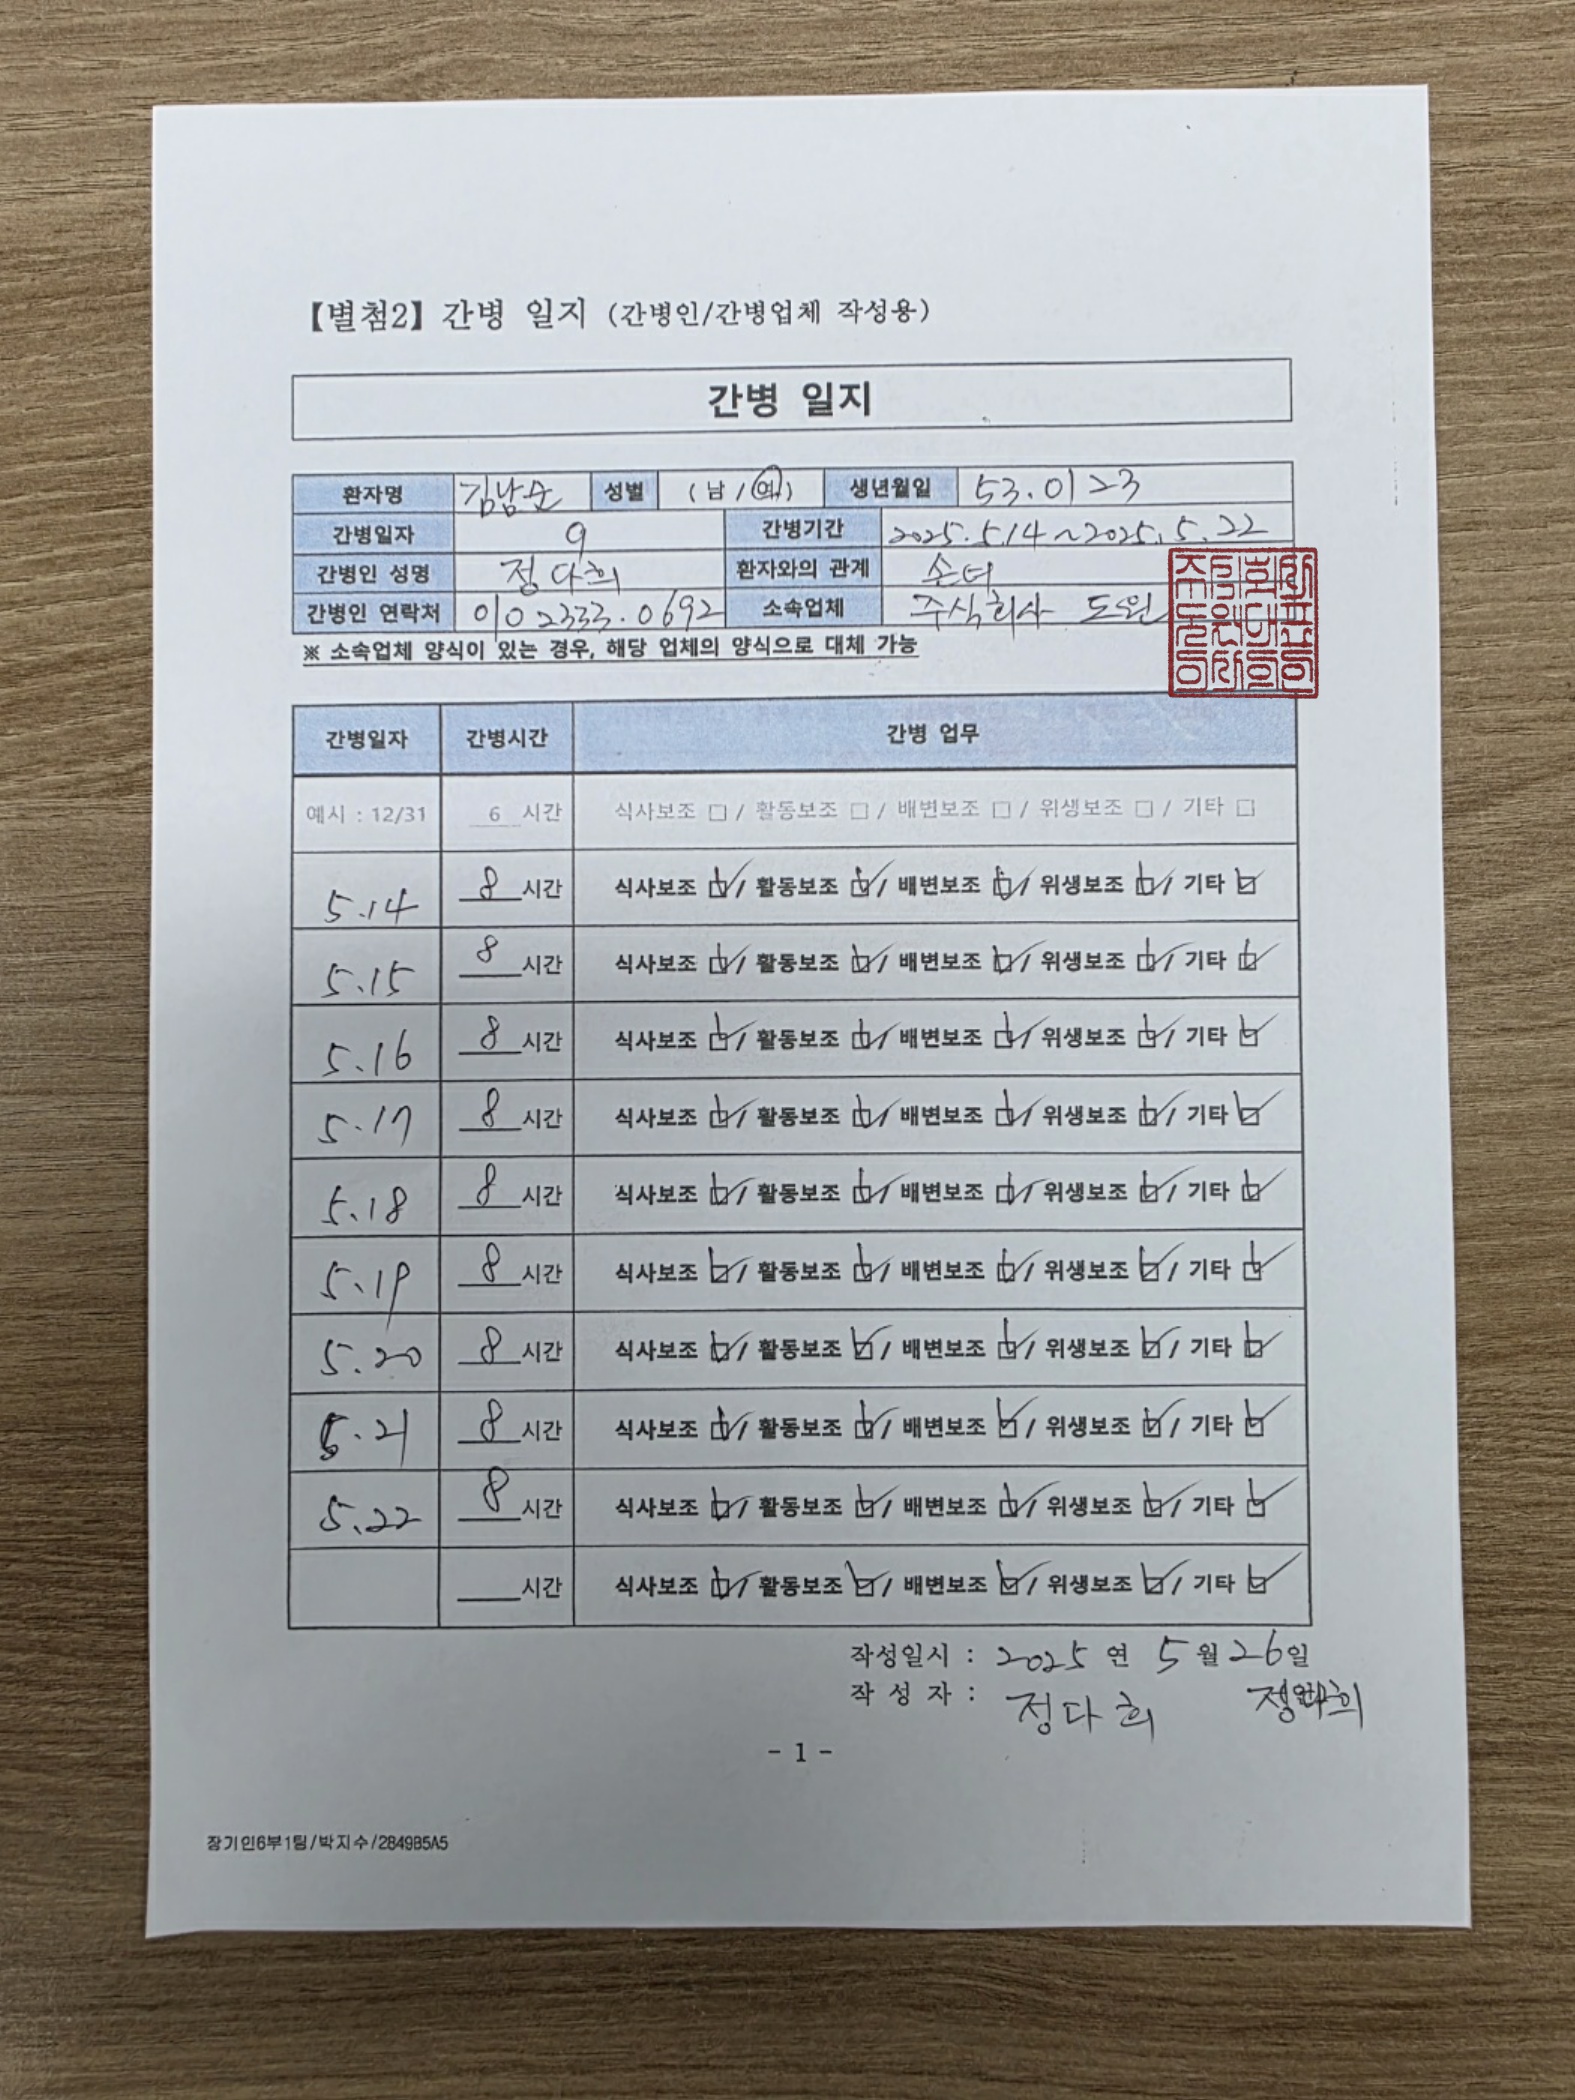 【별첨2】 간병 일지 (간병인/간병업체 작성용)
간병 일지
환자명 김남순 성별 ( 남 / 여 ) 생년월일 53.0123
간병일자 9 간병기간 2025.5.14 ~ 2025.5.22
간병인 성명 정다희 환자와의 관계 손녀
간병인 연락처 010 2333.0692 소속업체 주식회사 도원
※ 소속업체 양식이 있는 경우, 해당 업체의 양식으로 대체 가능
간병일자 간병시간 간병 업무
예시 : 12/31 6 시간 식사보조 □ / 활동보조 □ / 배변보조 □ / 위생보조 □ / 기타 □
5.14 8 시간 식사보조 ☑ / 활동보조 ☑ / 배변보조 ☑ / 위생보조 ☑ / 기타 ☑
5.15 8 시간 식사보조 ☑ / 활동보조 ☑ / 배변보조 ☑ / 위생보조 ☑ / 기타 ☑
5.16 8 시간 식사보조 ☑ / 활동보조 ☑ / 배변보조 ☑ / 위생보조 ☑ / 기타 ☑
5.17 8 시간 식사보조 ☑ / 활동보조 ☑ / 배변보조 ☑ / 위생보조 ☑ / 기타 ☑
5.18 8 시간 식사보조 ☑ / 활동보조 ☑ / 배변보조 ☑ / 위생보조 ☑ / 기타 ☑
5.19 8 시간 식사보조 ☑ / 활동보조 ☑ / 배변보조 ☑ / 위생보조 ☑ / 기타 ☑
5.20 8 시간 식사보조 ☑ / 활동보조 ☑ / 배변보조 ☑ / 위생보조 ☑ / 기타 ☑
5.21 8 시간 식사보조 ☑ / 활동보조 ☑ / 배변보조 ☑ / 위생보조 ☑ / 기타 ☑
5.22 8 시간 식사보조 ☑ / 활동보조 ☑ / 배변보조 ☑ / 위생보조 ☑ / 기타 ☑
시간 식사보조 ☑ / 활동보조 ☑ / 배변보조 ☑ / 위생보조 ☑ / 기타 ☑
작성일시 : 2025 연 5 월 26 일
작 성 자 : 정다희 정다희
- 1 -
장기인6부1팀/박지수/284985A5